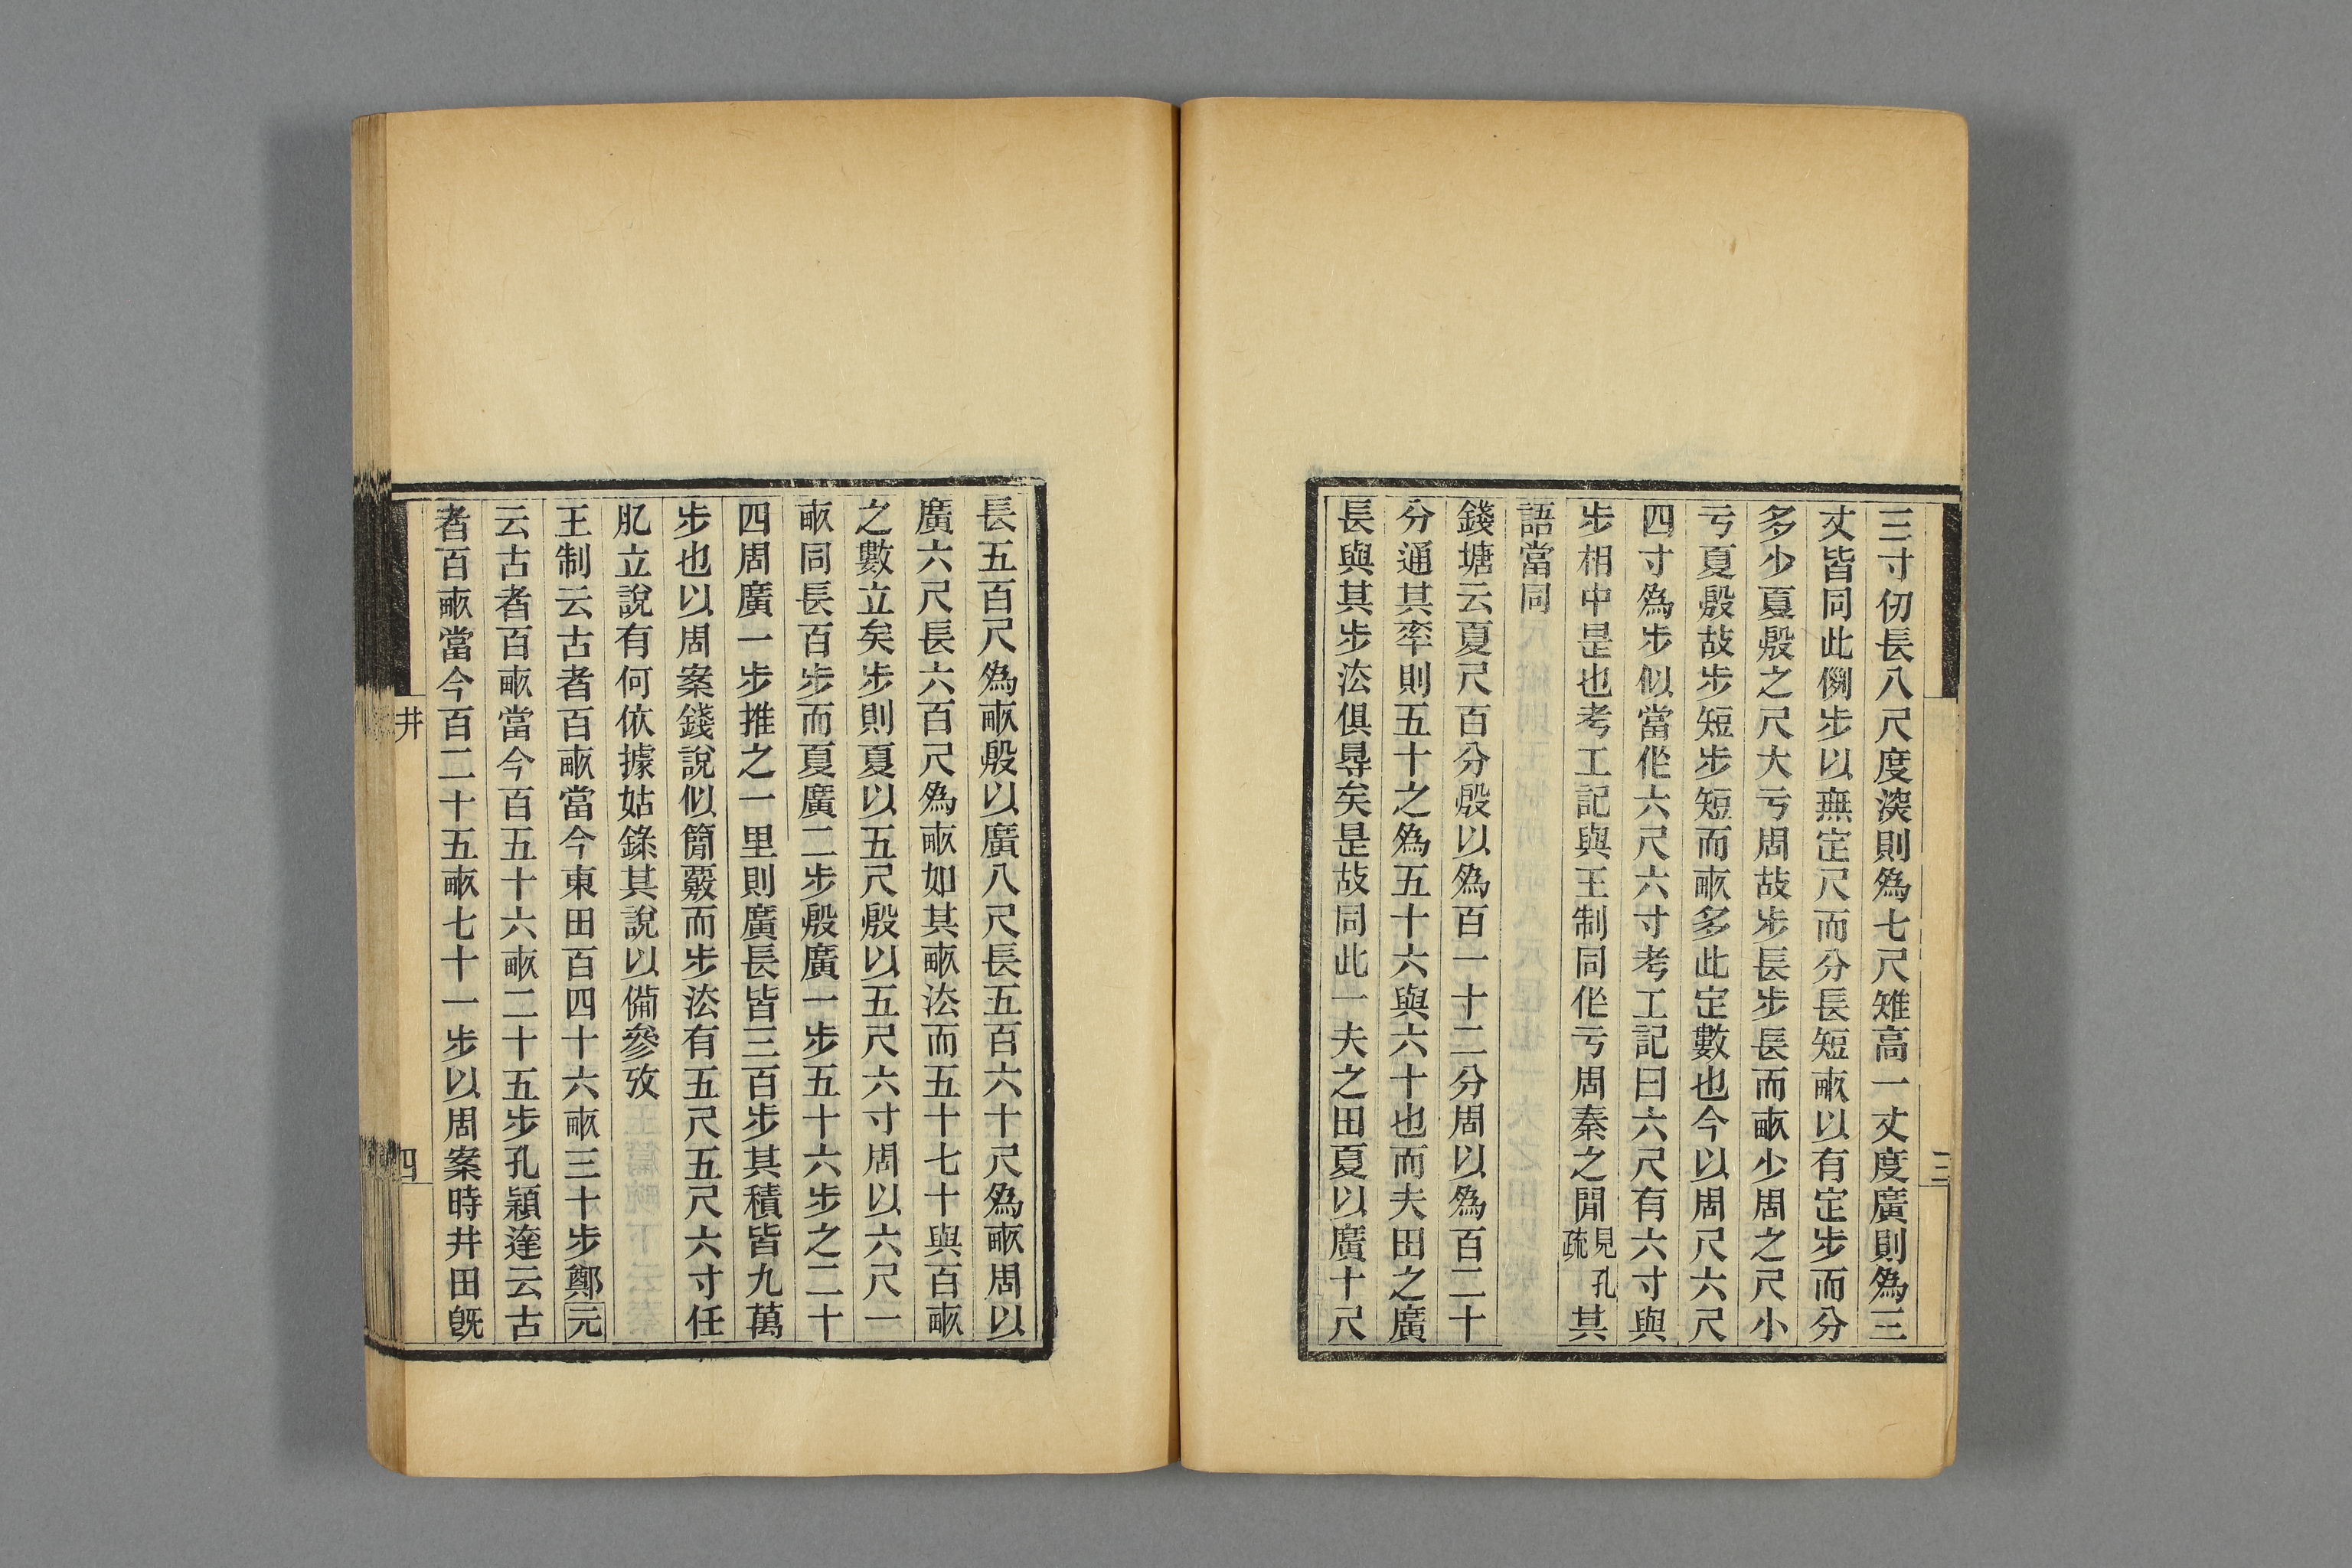 三寸仞長八尺度湥則爲七尺雉高一丈度廣則爲三
丈皆同此例步以無定尺而分長短畞以有定步而分
多少夏殷之尺大亏周故步長步長而畞少周之尺小
亏夏殷故步短步短而畞多此定數也今以周尺六尺
四寸爲步似當作六尺六寸考工記曰六尺有六寸與
步相中是也考工記與王制同作亏周秦之閒見孔疏其
語當同
錢塘云夏尺百分殷以爲百一十二分周以爲百二十
分通其率則五十之爲五十六與六十也而夫田之廣
長與其步法俱㝵矣是故同此一夫之田夏以廣十尺
三
長五百尺爲畞殷以廣八尺長五百六十尺爲畞周以
廣六尺長六百尺爲畞如其畞法而五十七十與百畞
之數立矣步則夏以五尺殷以五尺六寸周以六尺一
畞同長百步而夏廣二步殷廣一步五十六步之二十
四周廣一步推之一里則廣長皆三百步其積皆九萬
步也以周案錢說似簡覈而步法有五尺五尺六寸任
肊立說有何依據姑錄其說以備參攷
王制云古者百畞當今東田百四十六畞三十步鄭元
云古者百畞當今百五十六畞二十五步孔穎達云古
者百畞當今百二十五畞七十一步以周案時井田旣
井
四